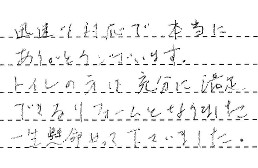 迅速な対応で 本当に
ありがとうございます。
トイレの方は 充分に 満足
できるリフォームとなりました
一生懸命やって下さいました。